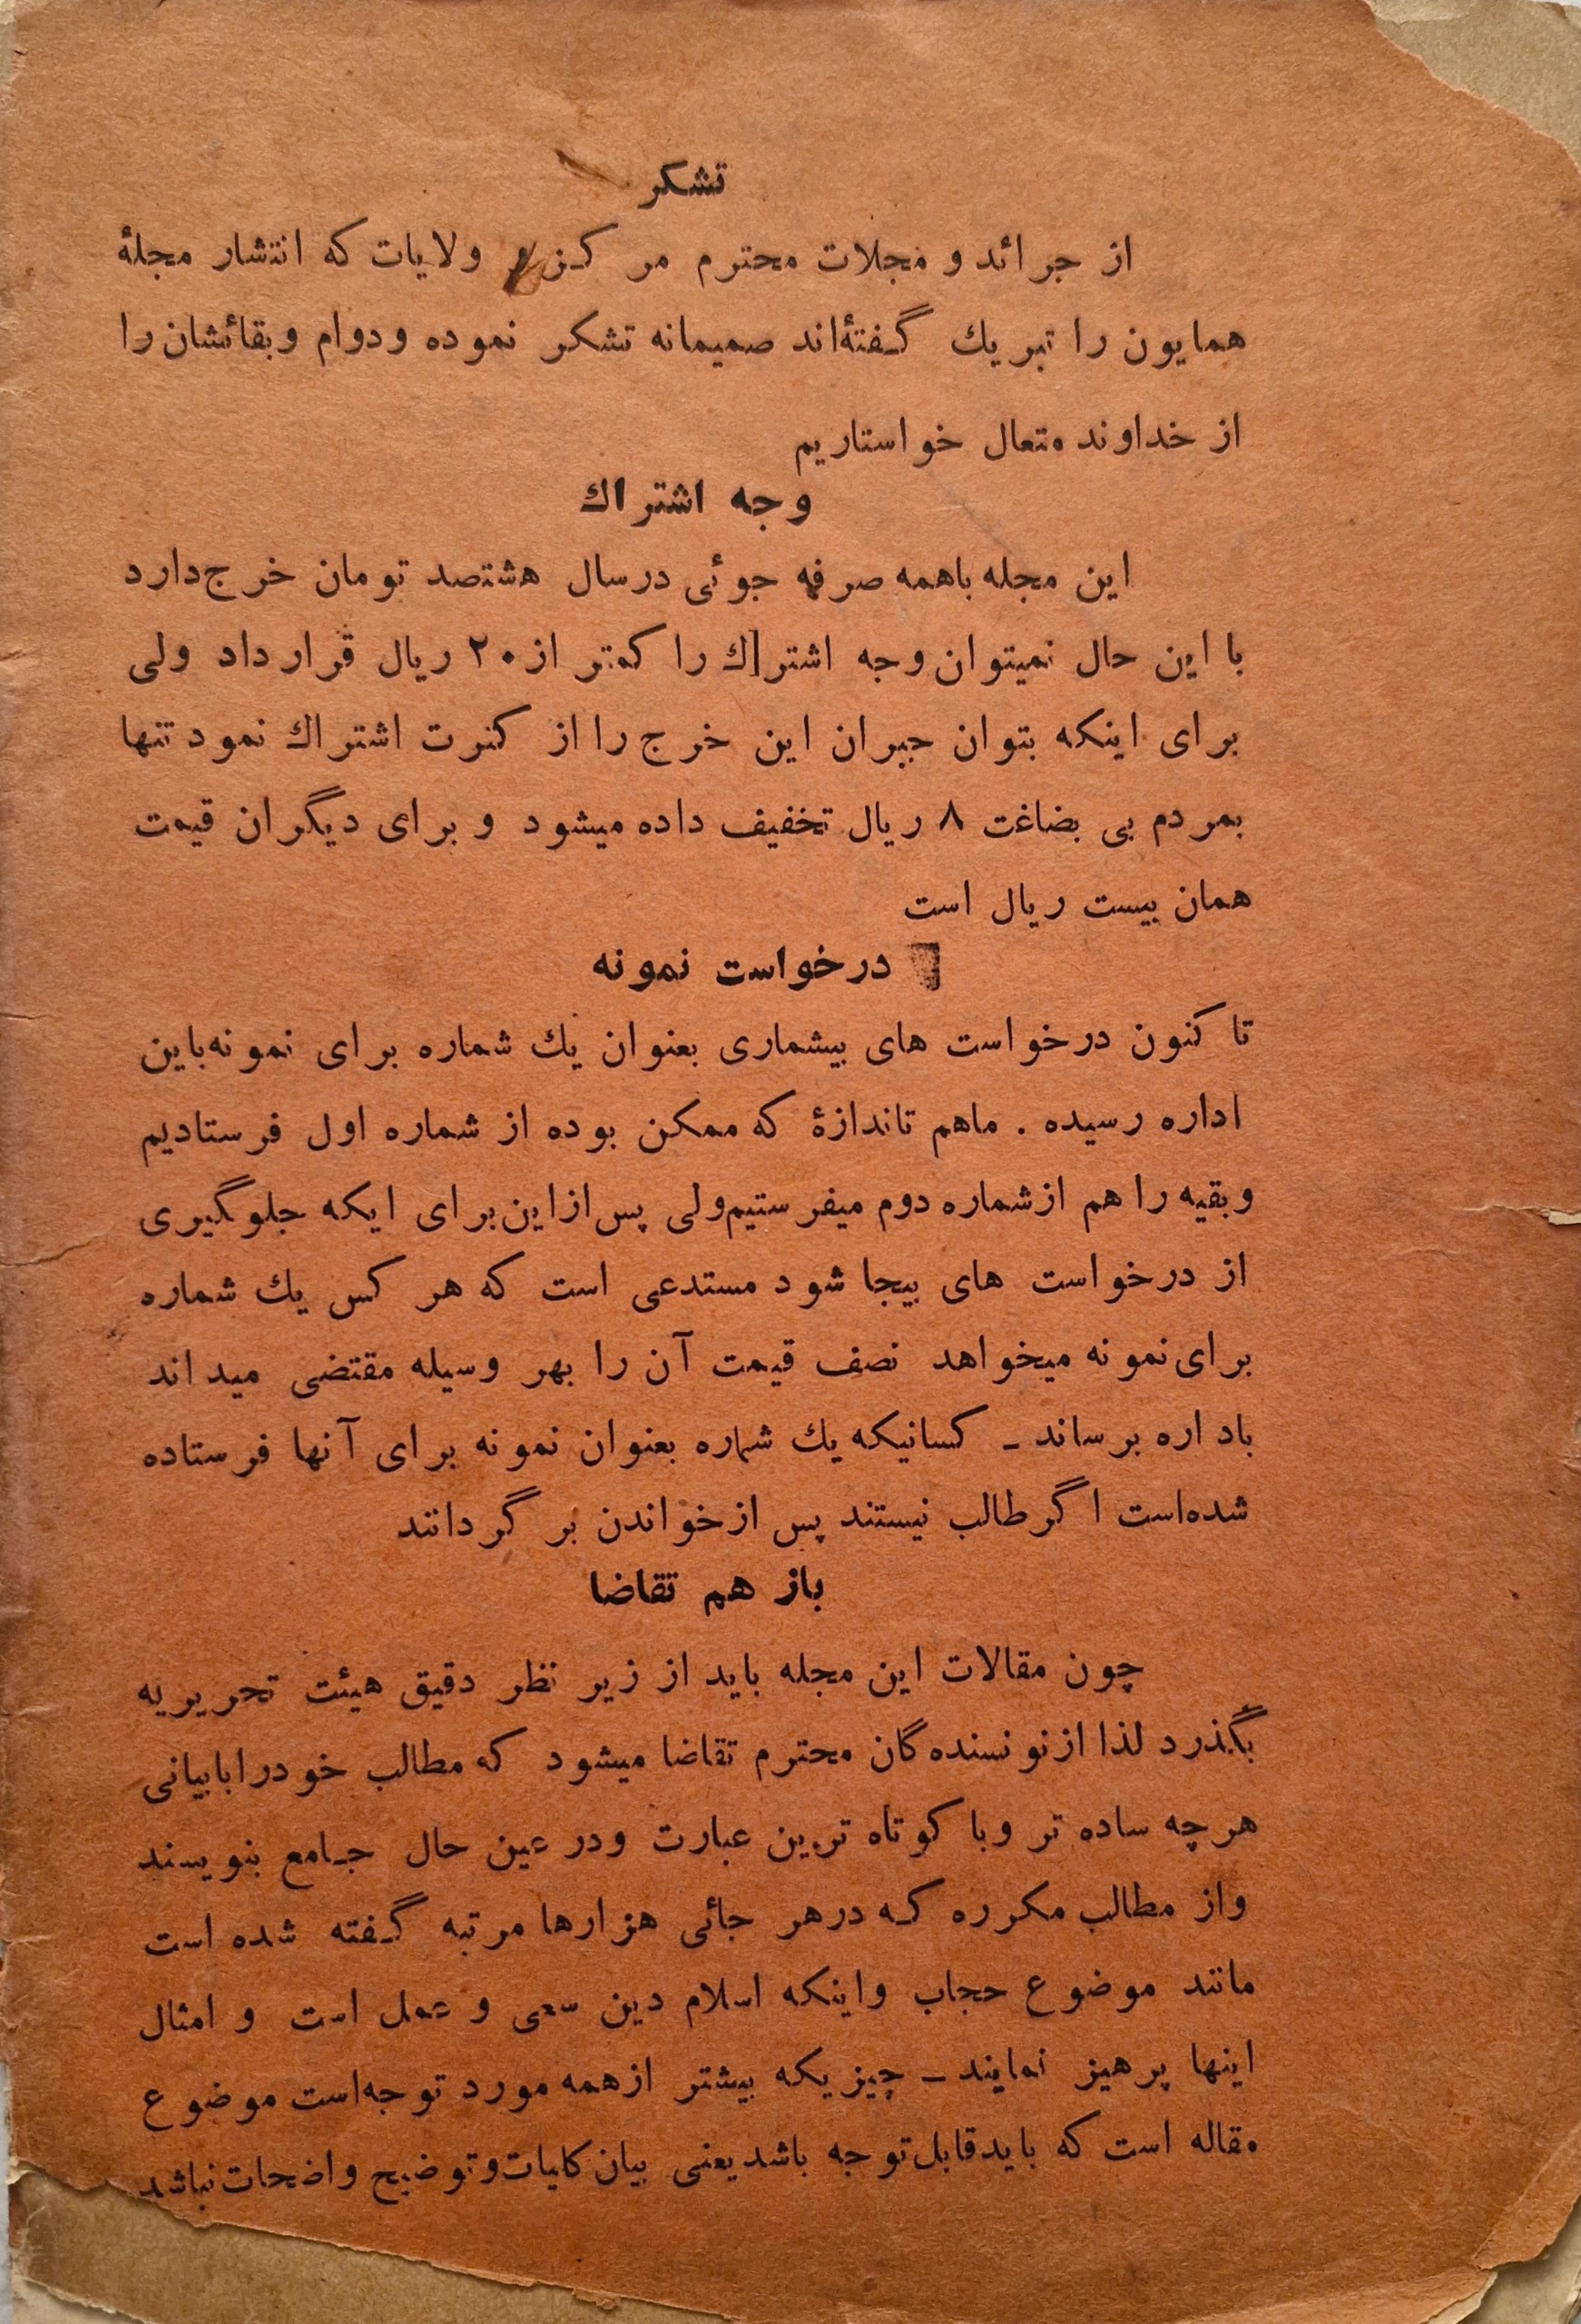 تشكر
از جرائد و مجلات محترم مركز و ولايات كه انتشار مجلۀ
همايون را تبريك گفتۀاند صميمانه تشكر نموده و دوام و بقائشان را
از خداوند متعال خواستاريم
وجه اشتراك
اين مجله باهمه صرفه جوئى در سال هشتصد تومان خرج دارد
با اين حال نميتوان وجه اشتراك را كمتر از ۲۰ ريال قرار داد ولى
براى اينكه بتوان جبران اين خرج را از كثرت اشتراك نمود تنها
بمردم بى بضاغت ۸ ريال تخفيف داده ميشود و براى ديگران قيمت
همان بيست ريال است
درخواست نمونه
تا كنون درخواست هاى بيشمارى بعنوان يك شماره براى نمونه باين
اداره رسيده . ماهم تاندازۀ كه ممكن بوده از شماره اول فرستاديم
وبقيه را هم از شماره دوم ميفرستيم ولى پس از اين براى ايكه جلوگيرى
از درخواست هاى بيجا شود مستدعى است كه هر كس يك شماره
براى نمونه ميخواهد نصف قيمت آن را بهر وسيله مقتضى ميداند
باداره برساند ـ كسانيكه يك شماره بعنوان نمونه براى آنها فرستاده
شده است اگر طالب نيستند پس از خواندن بر گردانند
باز هم تقاضا
چون مقالات اين مجله بايد از زير نظر دقيق هيئت تحريريه
بگذرد لذا از نونسنده گان محترم تقاضا ميشود كه مطالب خودرا بابيانى
هرچه ساده تر و با كوتاه ترين عبارت و در عين حال جامع بنويسند
و از مطالب مكرره كه در هر جائى هزارها مرتبه گفته شده است
مانند موضوع حجاب و اينكه اسلام دين سعى و عمل است و امثال
اينها پرهيز نمايند ـ چيزيكه بيشتر از همه مورد توجه است موضوع
مقاله است كه بايد قابل توجه باشد يعنى بيان كليات و توضيح واضحات نباشد